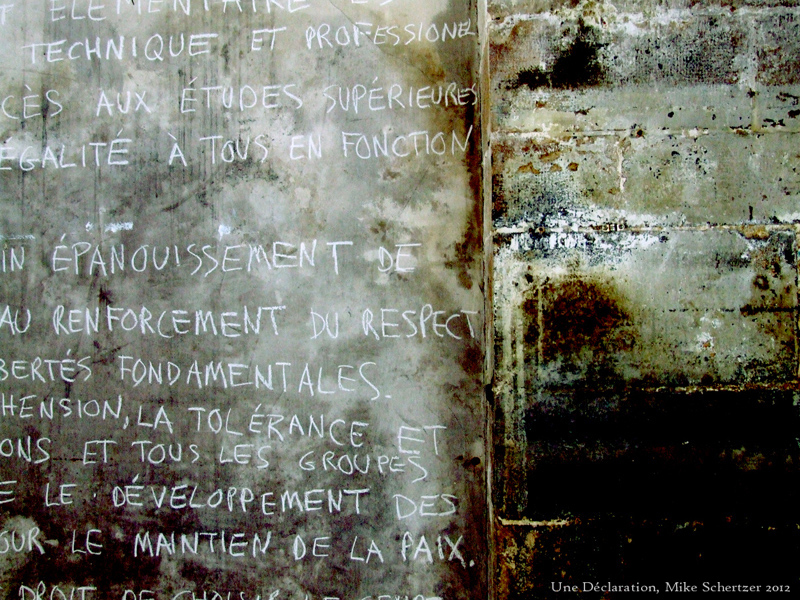 T ÉLÉMENTAIRE ES
TECHNIQUE ET PROFESSIONEL
CÈS AUX ÉTUDES SUPÉRIEURES
ÉGALITÉ À TOUS EN FONCTION
IN ÉPANOUISSEMENT DE
AU RENFORCEMENT DU RESPECT
BERTÉS FONDAMENTALES.
HENSION, LA TOLÉRANCE ET
ONS ET TOUS LES GROUPES
E LE DÉVELOPPEMENT DES
OUR LE MAINTIEN DE LA PAIX.
DROIT DE CHOISIR LE GENRE
Une Déclaration, Mike Schertzer 2012